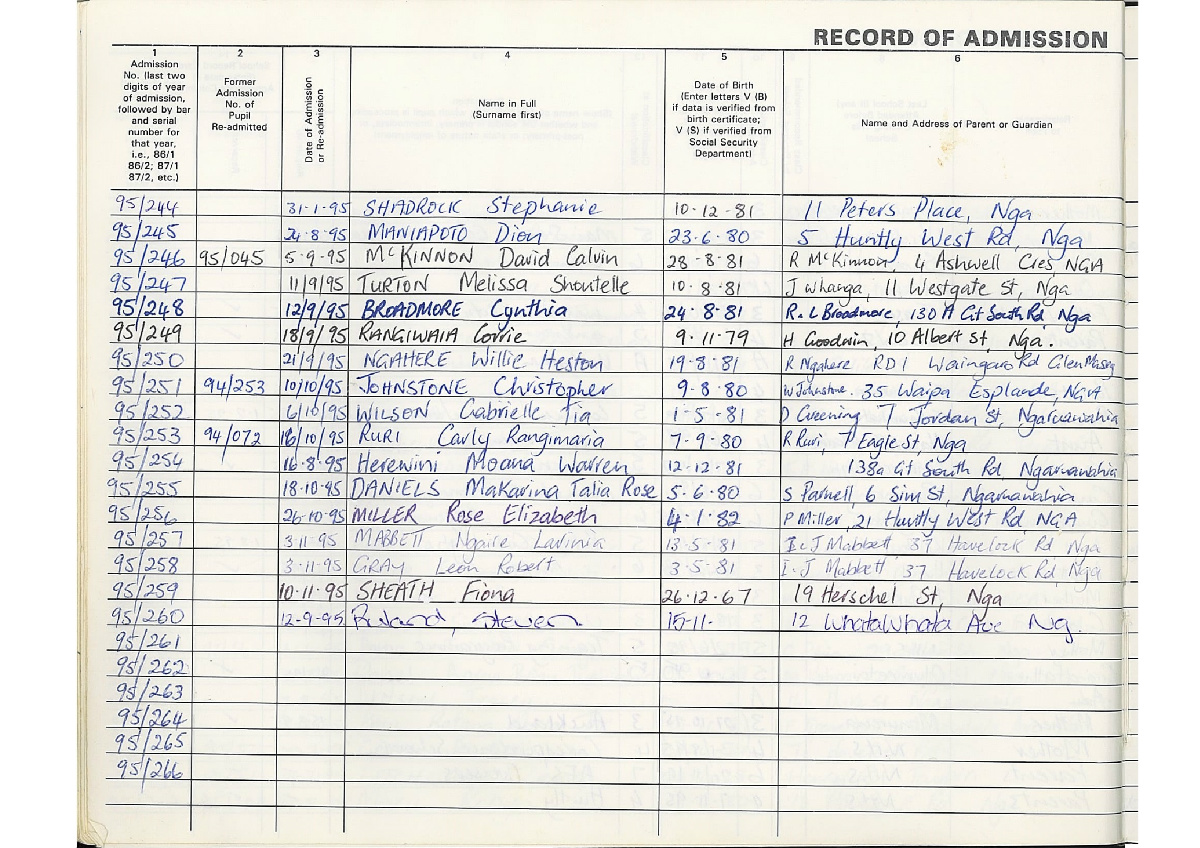 RECORD OF ADMISSION
1 2 3 4 5 6
Admission No. (last two digits of year of admission, followed by bar and serial number for that year, i.e., 86/1 86/2; 87/1 87/2, etc.)
Former Admission No. of Pupil Re-admitted
Date of Admission or Re-admission
Name in Full (Surname first)
Date of Birth (Enter letters V (B) if data is verified from birth certificate; V (S) if verified from Social Security Department)
Name and Address of Parent or Guardian
95/244 31-1-95 SHADROCK Stephanie 10-12-81 11 Peters Place, Nga
95/245 24-8-95 MANIAPOTO Dion 23.6.80 5 Huntly West Rd, Nga
95/246 95/045 5-9-95 McKINNON David Calvin 28-8-81 R McKinnon, 4 Ashwell Cres, NGA
95/247 11/9/95 TURTON Melissa Shontelle 10.8.81 J Whanga, 11 Westgate St, Nga
95/248 12/9/95 BROADMORE Cynthia 24.8.81 R.L Broadmore, 130A Gt South Rd, Nga
95/249 18/9/95 RANGIWAIA Corrie 9.11.79 H Goodwin, 10 Albert St, Nga.
95/250 21/9/95 NGAHERE Willie Heston 19.8.81 R Ngahere RD1 Waingaro Rd Glen Massey
95/251 94/253 10/10/95 JOHNSTONE Christopher 9-8-80 W Johnstone. 35 Waipa Esplande, NGA
95/252 6/10/95 WILSON Gabrielle Tia 1-5-81 D Greening 7 Jordan St, Ngaruawahia
95/253 94/072 16/10/95 RURI Carly Rangimaria 7-9-80 R Ruri, Eagle St, Nga
95/254 16.8.95 Herewini Moana Warren 12-12-81 138a Gt South Rd, Ngaruawahia
95/255 18.10.95 DANIELS Makarina Talia Rose 5.6.80 S Parnell 6 Sim St, Ngaruawahia
95/256 26-10-95 MILLER Rose Elizabeth 4.1.82 P Miller, 21 Huntly West Rd, NGA
95/257 3-11-95 MABBETT Ngaire Lavinia 13-5-81 I. J Mabbett 37 Havelock Rd Nga
95/258 3-11-95 GRAY Leon Robert 3-5-81 I. J Mabbett 37 Havelock Rd, Nga
95/259 10.11.95 SHEATH Fiona 26.12.67 19 Herschel St, Nga
95/260 12-9-95 Steven 15-11- 12 WhataWhata Ave Ng.
95/261
95/262
95/263
95/264
95/265
95/266